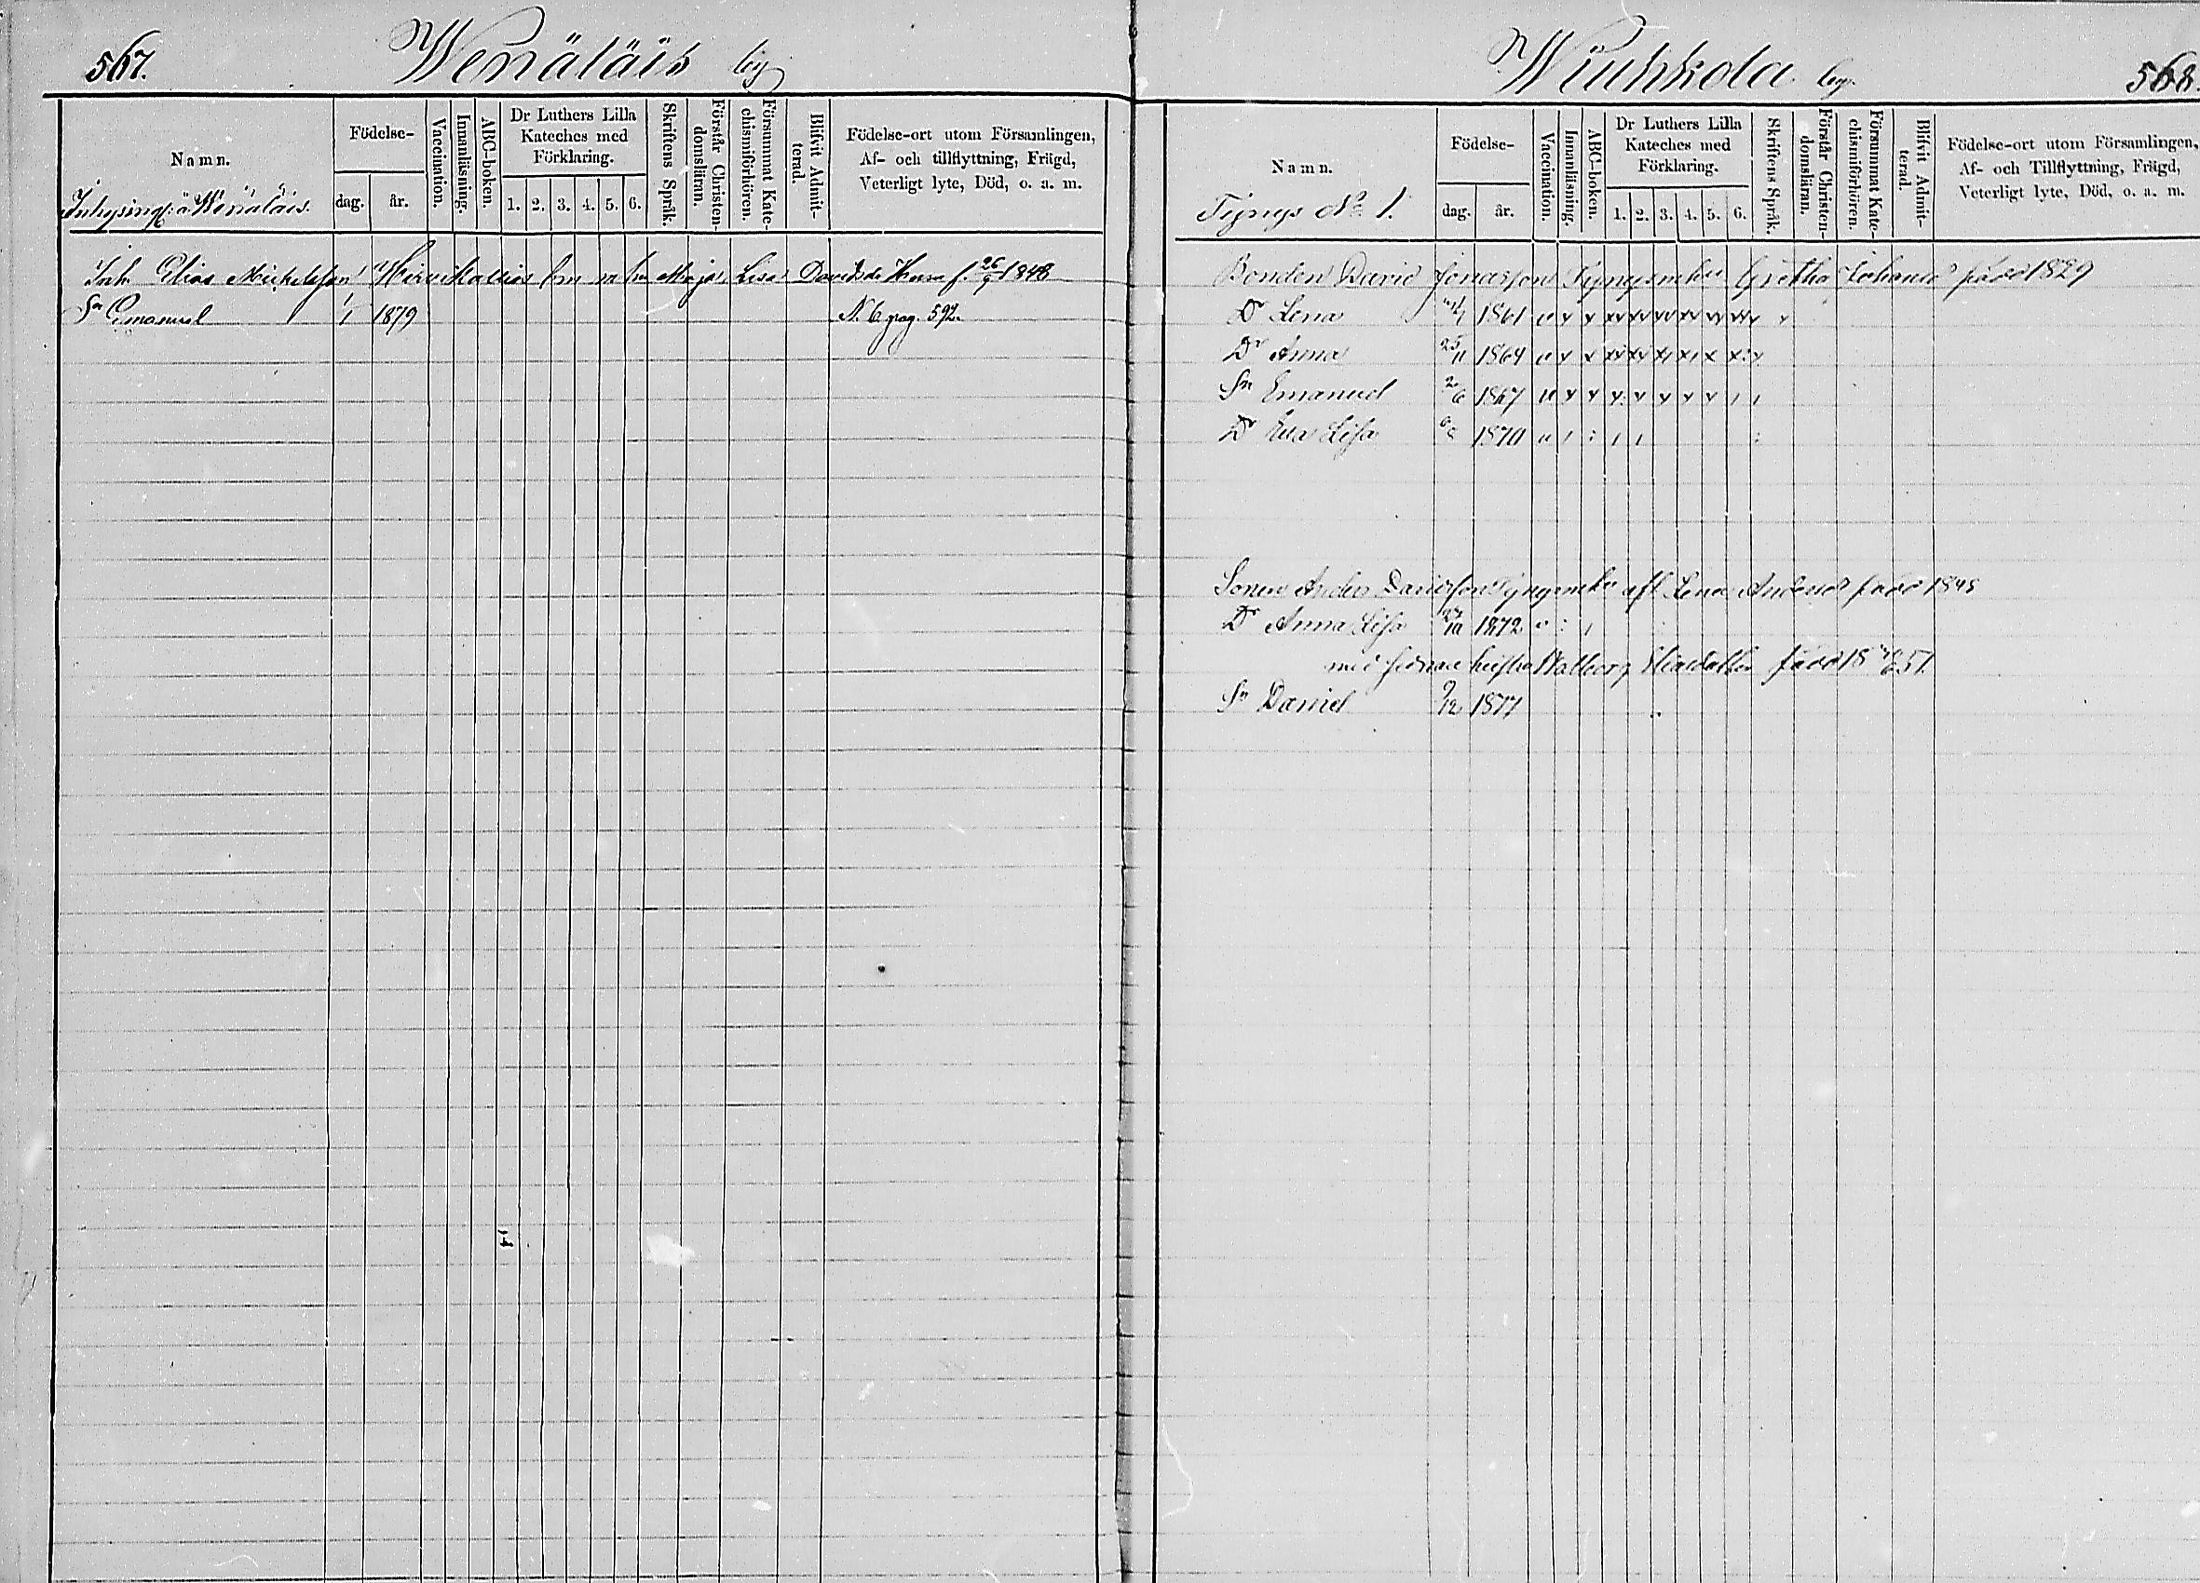 567.
Wenäläis by
Namn.
Inhysing: à Wenäläis.
Födelse-
dag.
år.
Vaccination.
Innanläsning.
ABC-boken.
Dr Luthers Lilla
Kateches med
Förklaring.
1. 2. 3. 4. 5. 6.
Skriftens Språk.
Förstår Christen-
domsläran.
Försummat Kate-
chismiförhören.
Blifvit Admit-
terad.
Födelse-ort utom Församlingen,
Af- och tillflyttning, Frägd,
Veterligt lyte, Död, o. a. m.
Inh. Elias Mickelsson Maja Lisa Davidsdr f. 26/9 1848
Sn Emanuel 1/1 1879 N. 6 pag. 592.
14
Wiuhkola by.
568.
Namn.
Tynys No 1.
Födelse-
dag.
år.
Vaccination.
Innanläsning.
ABC-boken.
Dr Luthers Lilla
Kateches med
Förklaring.
1. 2. 3. 4. 5. 6.
Skriftens Språk.
Förstår Christen-
domsläran.
Försummat Kate-
chismiförhören.
Blifvit Admit-
terad.
Födelse-ort utom Församlingen,
Af- och Tillflyttning, Frägd,
Veterligt lyte, Död, o. a. m.
Bonden David Jonasson Tynys m hu Gretha Johansd född 1829
Dr Lena 1861
Dr Anna 25/11 1864
Sn Emanuel 2/6 1867
Dr Eva Lisa 1870
Sonen Anders Davidsson Tynys enkl. afl. Lena Andersd född 1845
Dr Anna Lisa 1872
med sednare hustru Walborg född 18 51
Sn David 9/12 1877